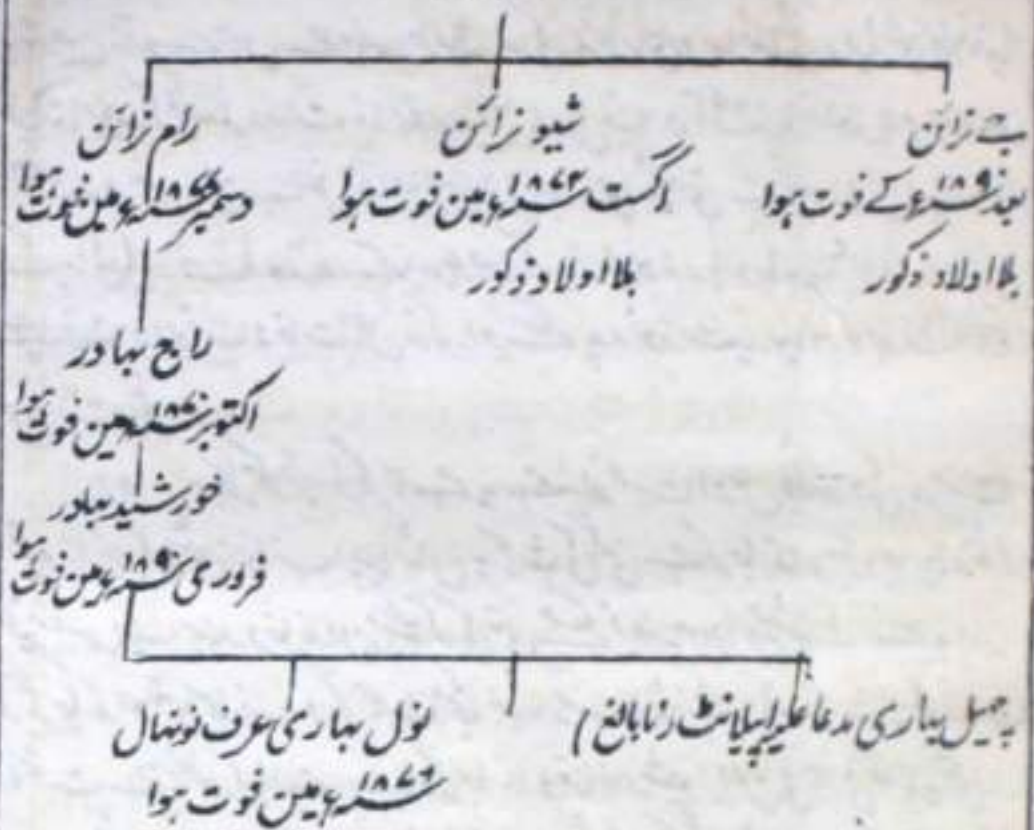 جے نرائن
بعد ۱۸۹۰ء کے فوت ہوا
بلا اولاد ذکور
شیو نرائن
اگست ۱۸۷۴ء مین فوت ہوا
بلا اولاد ذکور
رام نرائن
دسمبر مین فوت ہوا
راج بہادر
اکتوبر مین فوت ہوا
خورشید بہادر
فروری ۱۸۹۰ء مین فوت ہوا
بہاری مدعا علیہ اپیلانٹ (نابالغ)
نول بہاری عرف نونہال
مین فوت ہوا